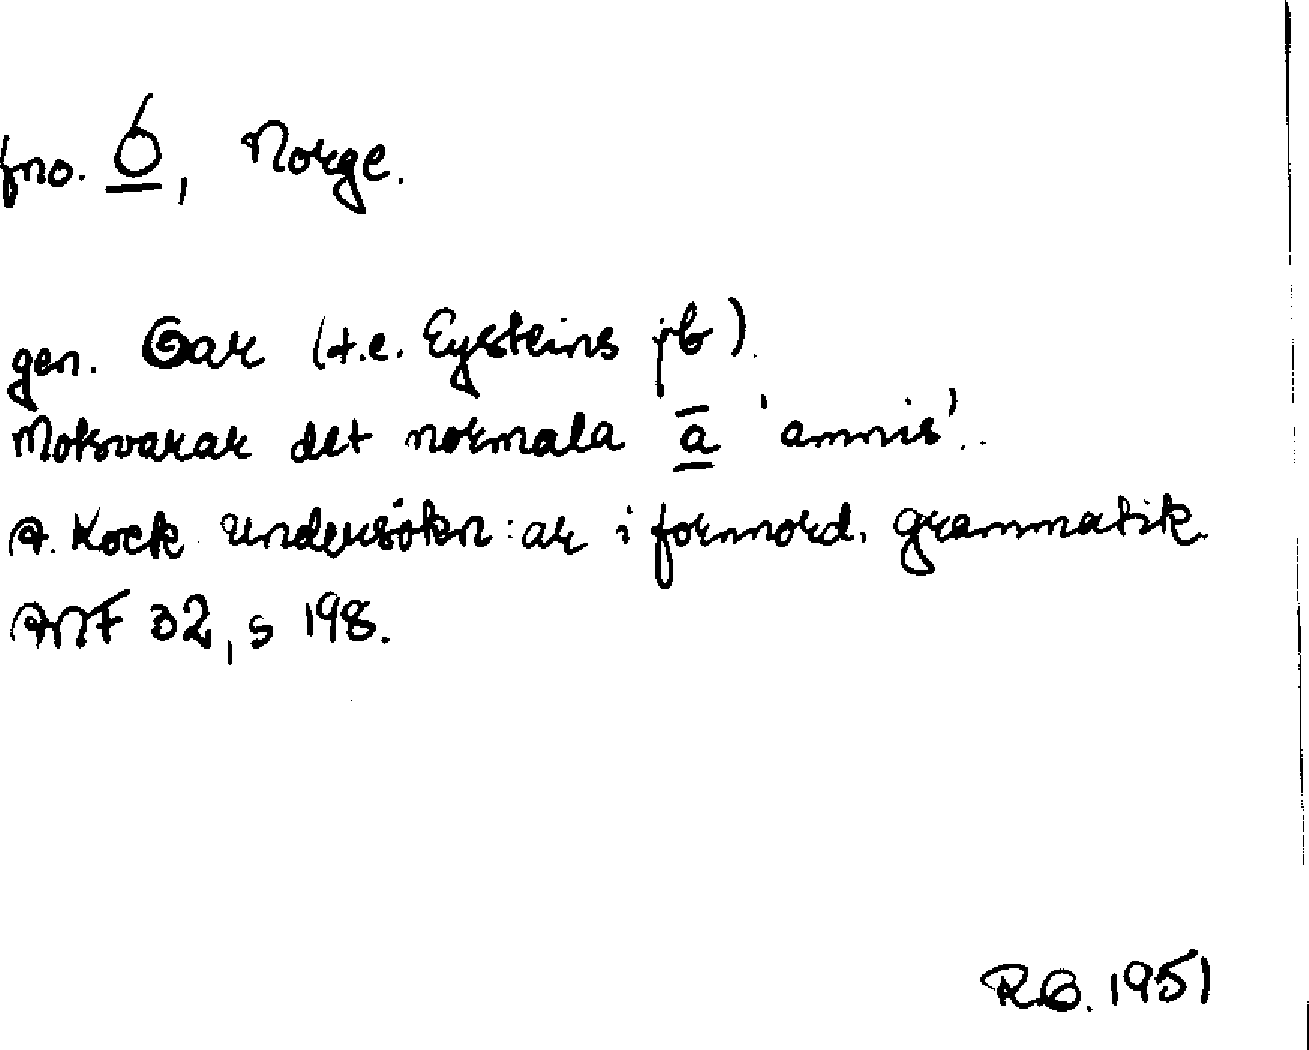 fno. Ó, Norge.
gen. Oar (t.e. Eysteins jb).
Motsvarar det normala ā 'amnis'.
A. Kock undersökn:ar i fornnord. grammatik
ANF 32, s 198.
R.G. 1951